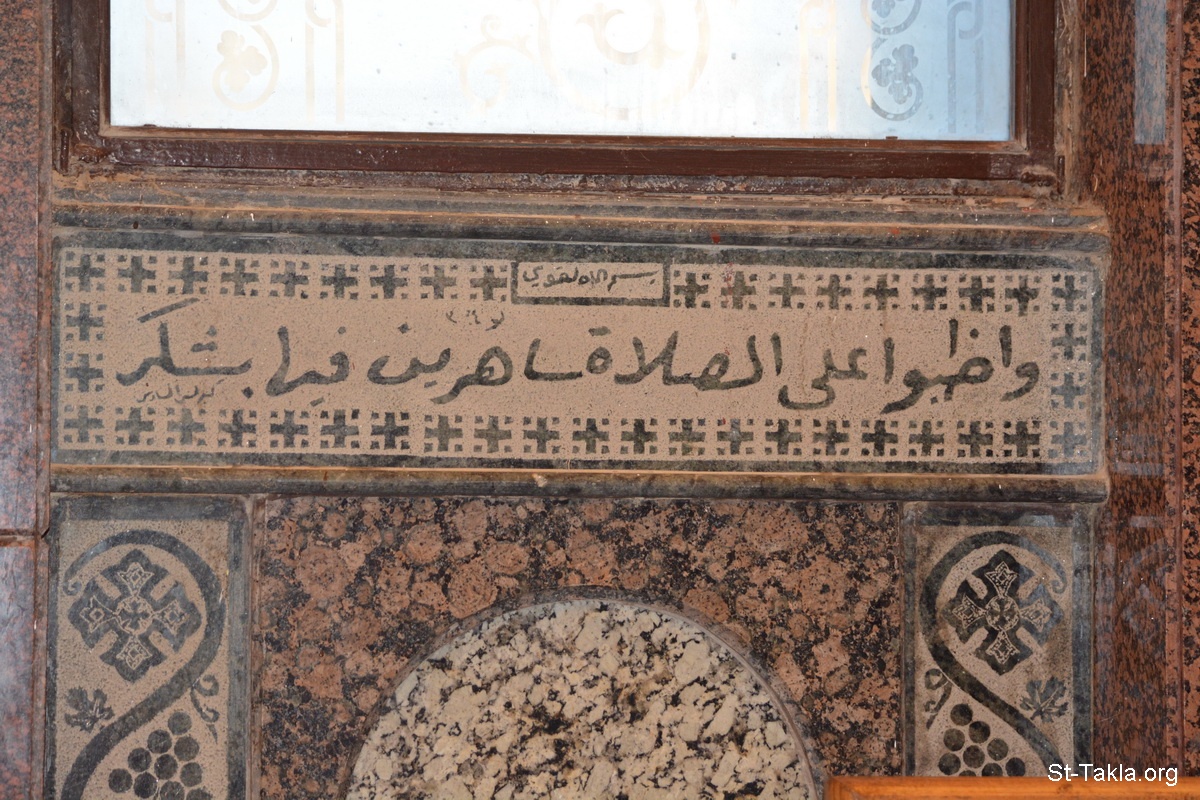 بسم الاله القوي
واظبوا على الصلاة ساهرين فيها بشكر
St-Takla.org